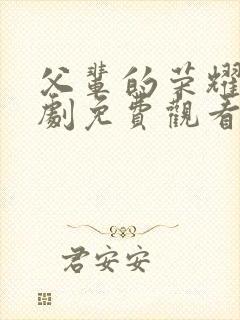 父輩的荣耀
劇免費觀看
君安安